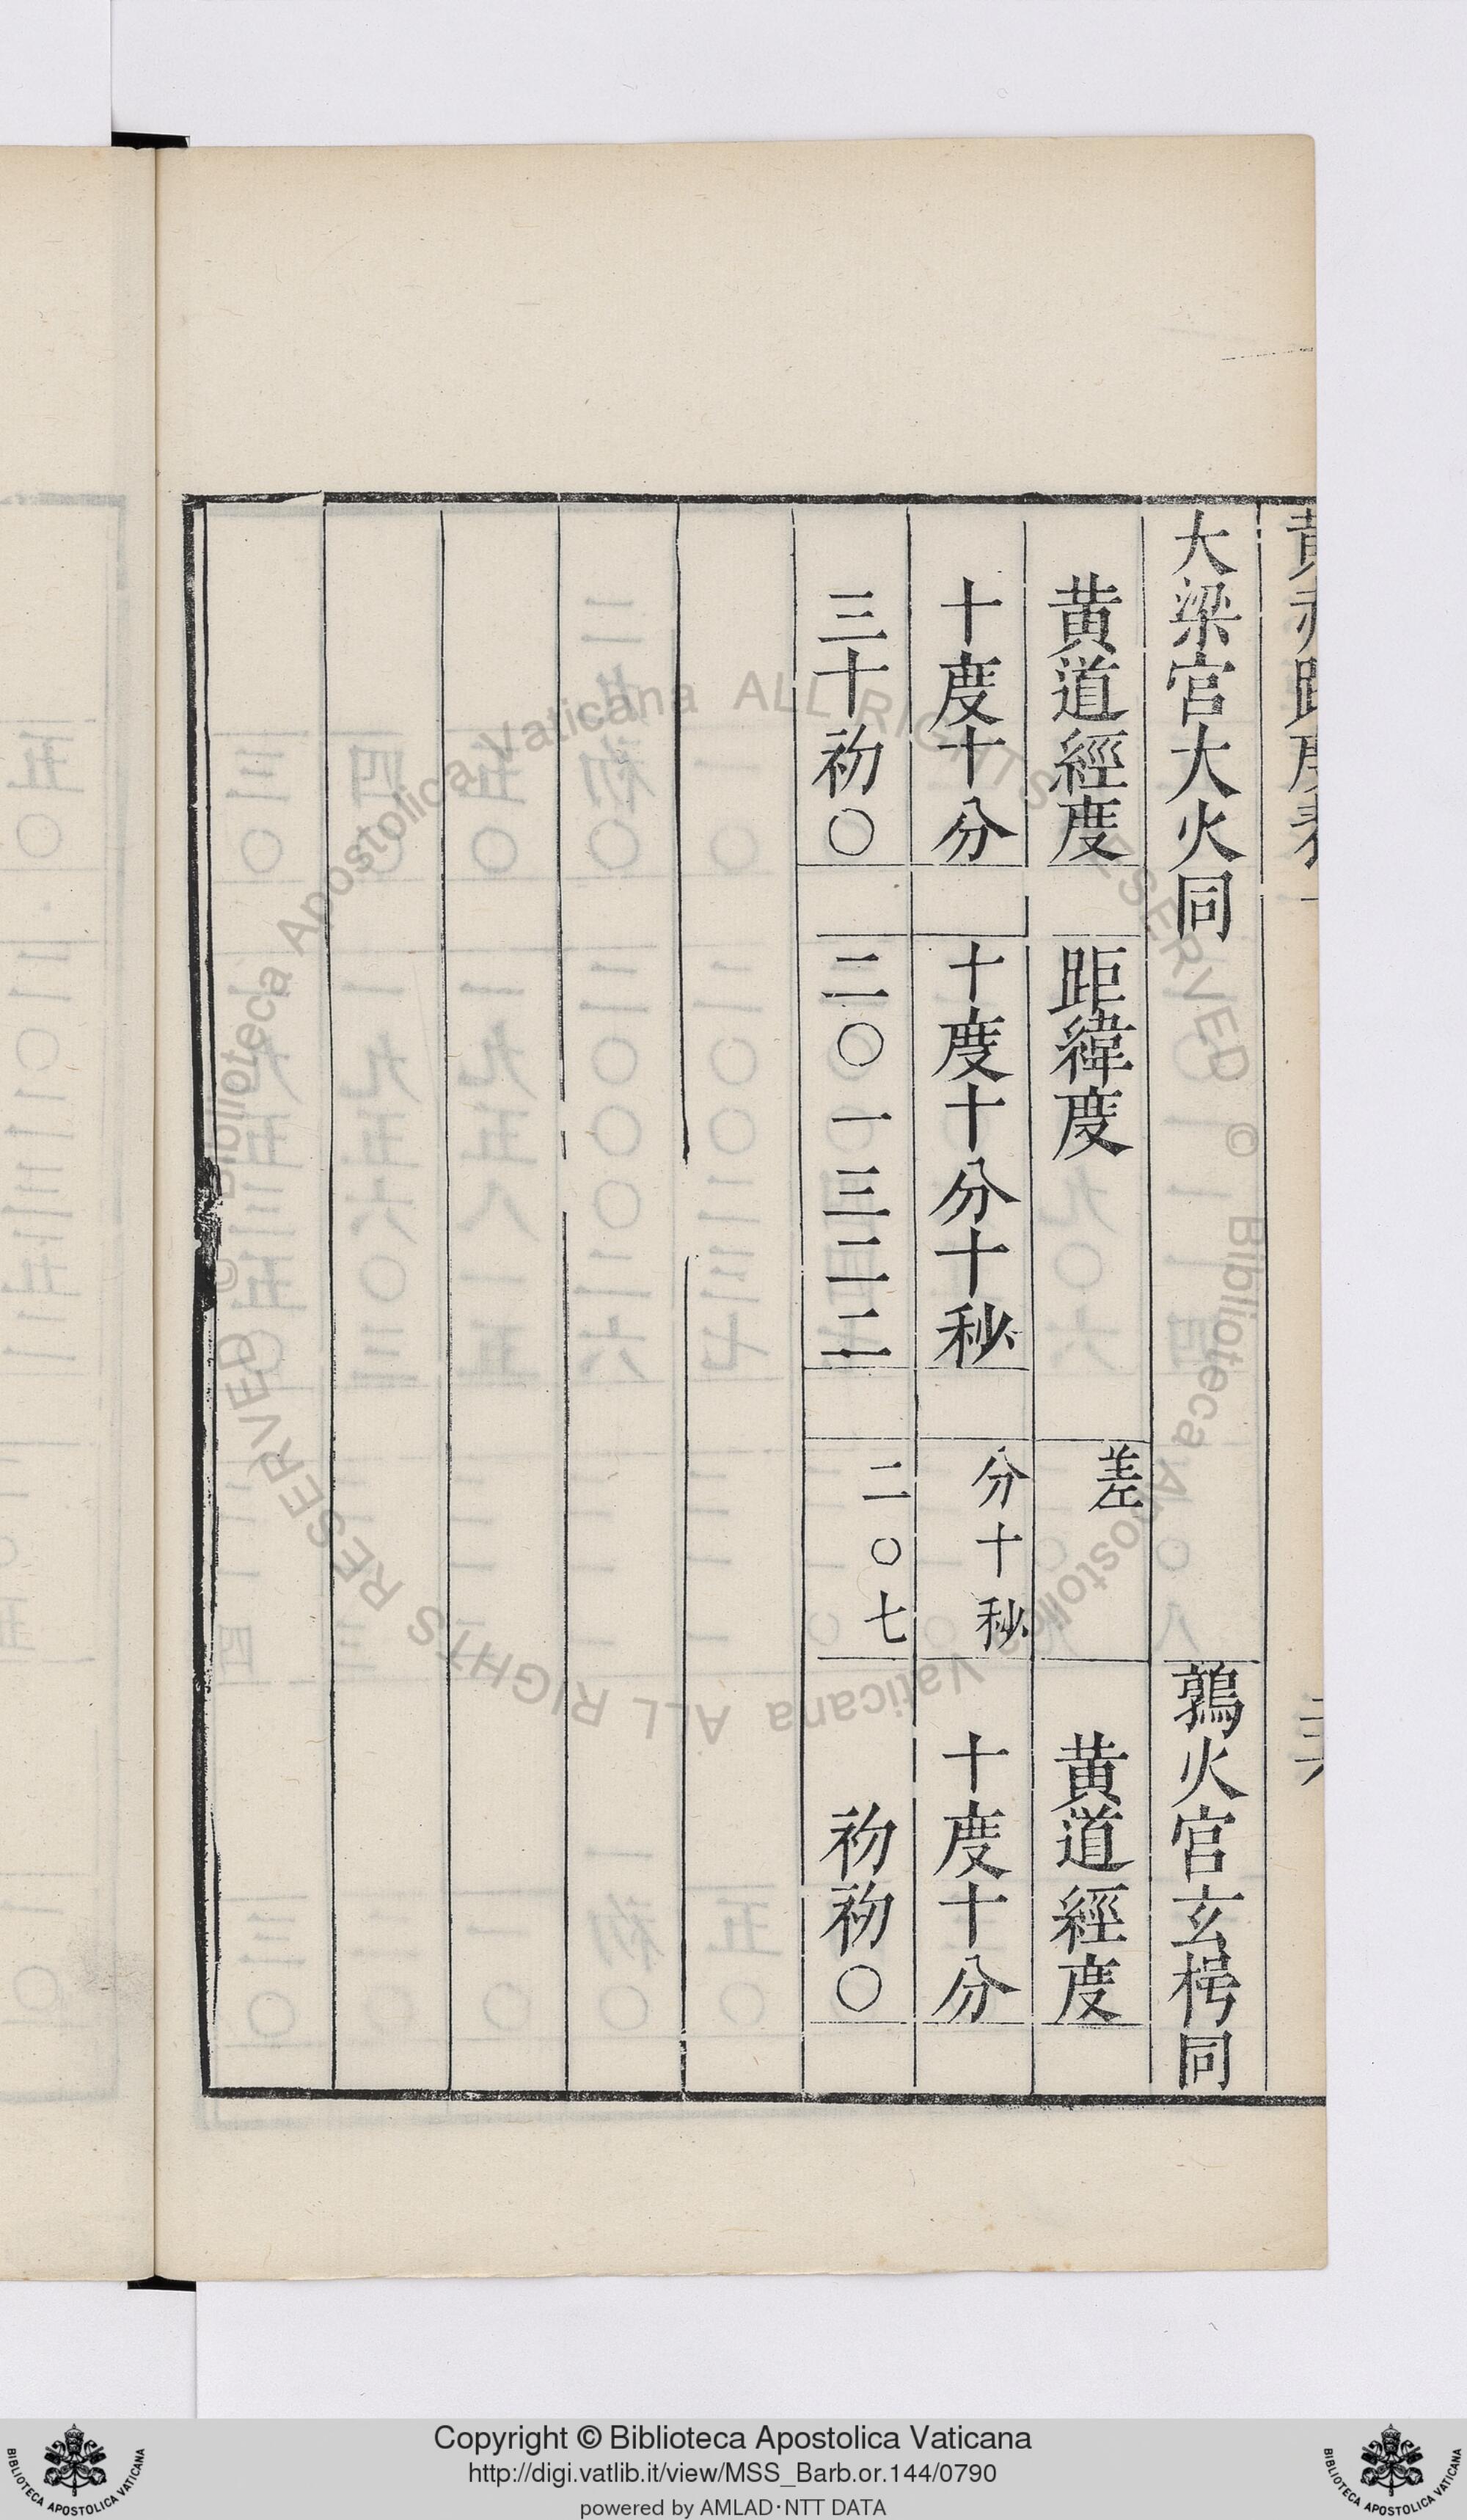 黃赤距度表
大梁宮大火同 鶉火宮玄枵同
黃道經度 距緯度 差 黃道經度
十度十分 十度十分十秒 分十秒 十度十分
三十初〇 二〇一三二二 二〇七 初初〇
© Biblioteca Apostolica Vaticana ALL RIGHTS RESERVED © Biblioteca Apostolica Vaticana ALL RIGHTS RESERVED
Copyright © Biblioteca Apostolica Vaticana
http://digi.vatlib.it/view/MSS_Barb.or.144/0790
powered by AMLAD·NTT DATA
BIBLIOTECA APOSTOLICA VATICANA
BIBLIOTECA APOSTOLICA VATICANA